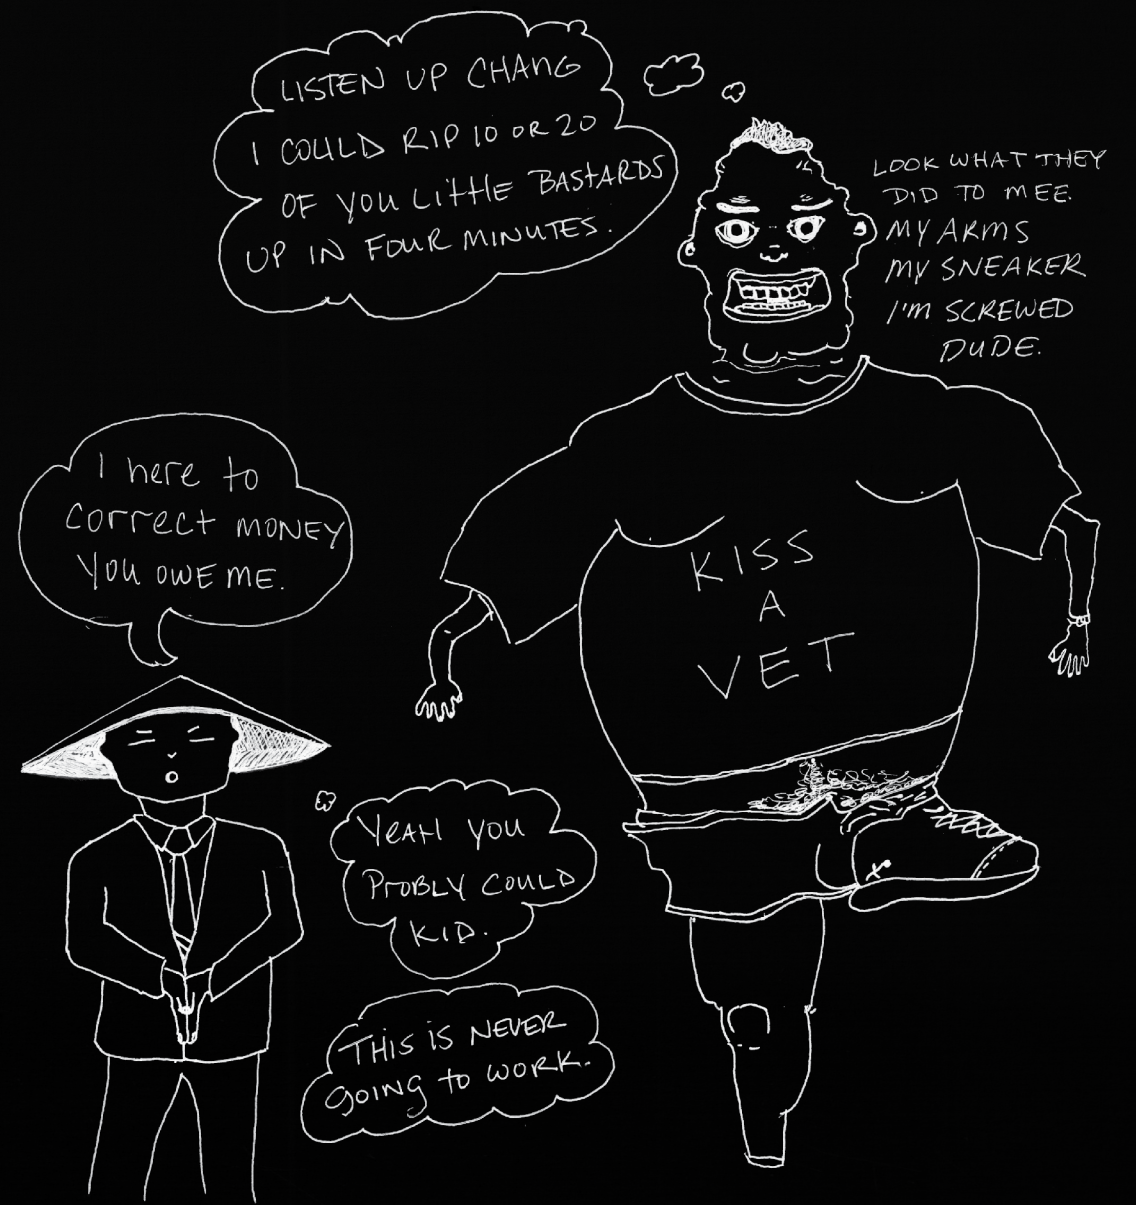 LISTEN UP CHANG
I COULD RIP 10 OR 20
OF YOU LITTLE BASTARDS
UP IN FOUR MINUTES.
LOOK WHAT THEY
DID TO MEE.
MY ARMS
MY SNEAKER
I'M SCREWED
DUDE.
I here to
correct MONEY
YOU OWE ME.
KISS
A
VET
YEAH YOU
PROBLY COULD
KID.
THIS IS NEVER
GOING TO WORK.